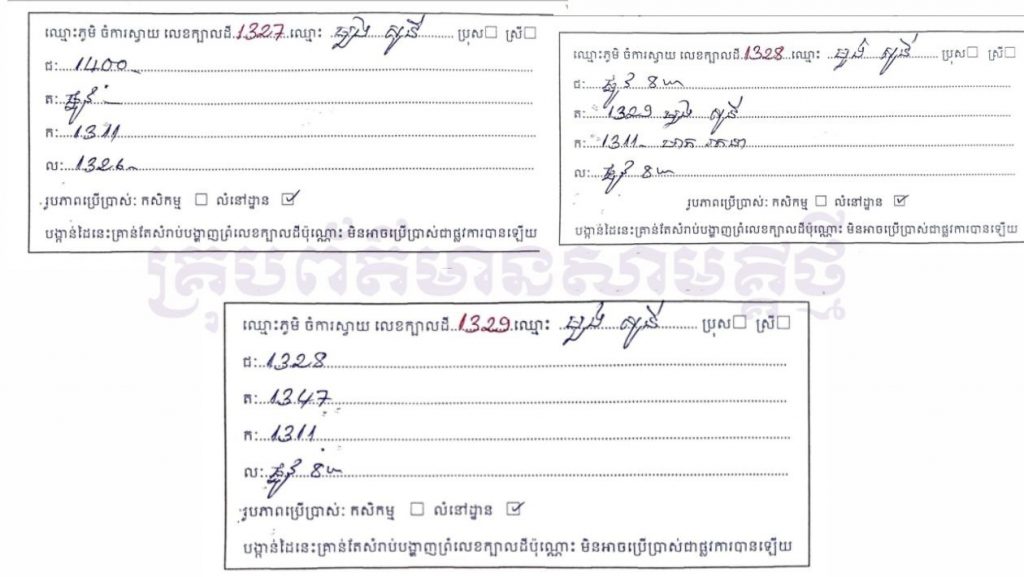 ឈ្មោះភូមិ ចំការស្វាយ លេខក្បាលដី 1327 ឈ្មោះ ប្រុស☐ ស្រី☐
ជ: 1400
ត: ផ្លូវ
ក: 1311
ល: 1326
រូបភាពប្រើប្រាស់: កសិកម្ម ☐ លំនៅដ្ឋាន ☑
បង្កាន់ដៃនេះគ្រាន់តែសំរាប់បង្ហាញព្រំលេខក្បាលដីប៉ុណ្ណោះ មិនអាចប្រើប្រាស់ជាផ្លូវការបានឡើយ
ឈ្មោះភូមិ ចំការស្វាយ លេខក្បាលដី 1328 ឈ្មោះ ប្រុស☐ ស្រី☐
ជ: ផ្លូវ 8ម
ត: 1329
ក: 1311
ល: ផ្លូវ 8ម
រូបភាពប្រើប្រាស់: កសិកម្ម ☐ លំនៅដ្ឋាន ☑
បង្កាន់ដៃនេះគ្រាន់តែសំរាប់បង្ហាញព្រំលេខក្បាលដីប៉ុណ្ណោះ មិនអាចប្រើប្រាស់ជាផ្លូវការបានឡើយ
គ្រុបព័ត៌មានសាមគ្គីថ្មី
ឈ្មោះភូមិ ចំការស្វាយ លេខក្បាលដី 1329 ឈ្មោះ ប្រុស☐ ស្រី☐
ជ: 1328
ត: 1347
ក: 1311
ល: ផ្លូវ 8ម
រូបភាពប្រើប្រាស់: កសិកម្ម ☐ លំនៅដ្ឋាន ☑
បង្កាន់ដៃនេះគ្រាន់តែសំរាប់បង្ហាញព្រំលេខក្បាលដីប៉ុណ្ណោះ មិនអាចប្រើប្រាស់ជាផ្លូវការបានឡើយ